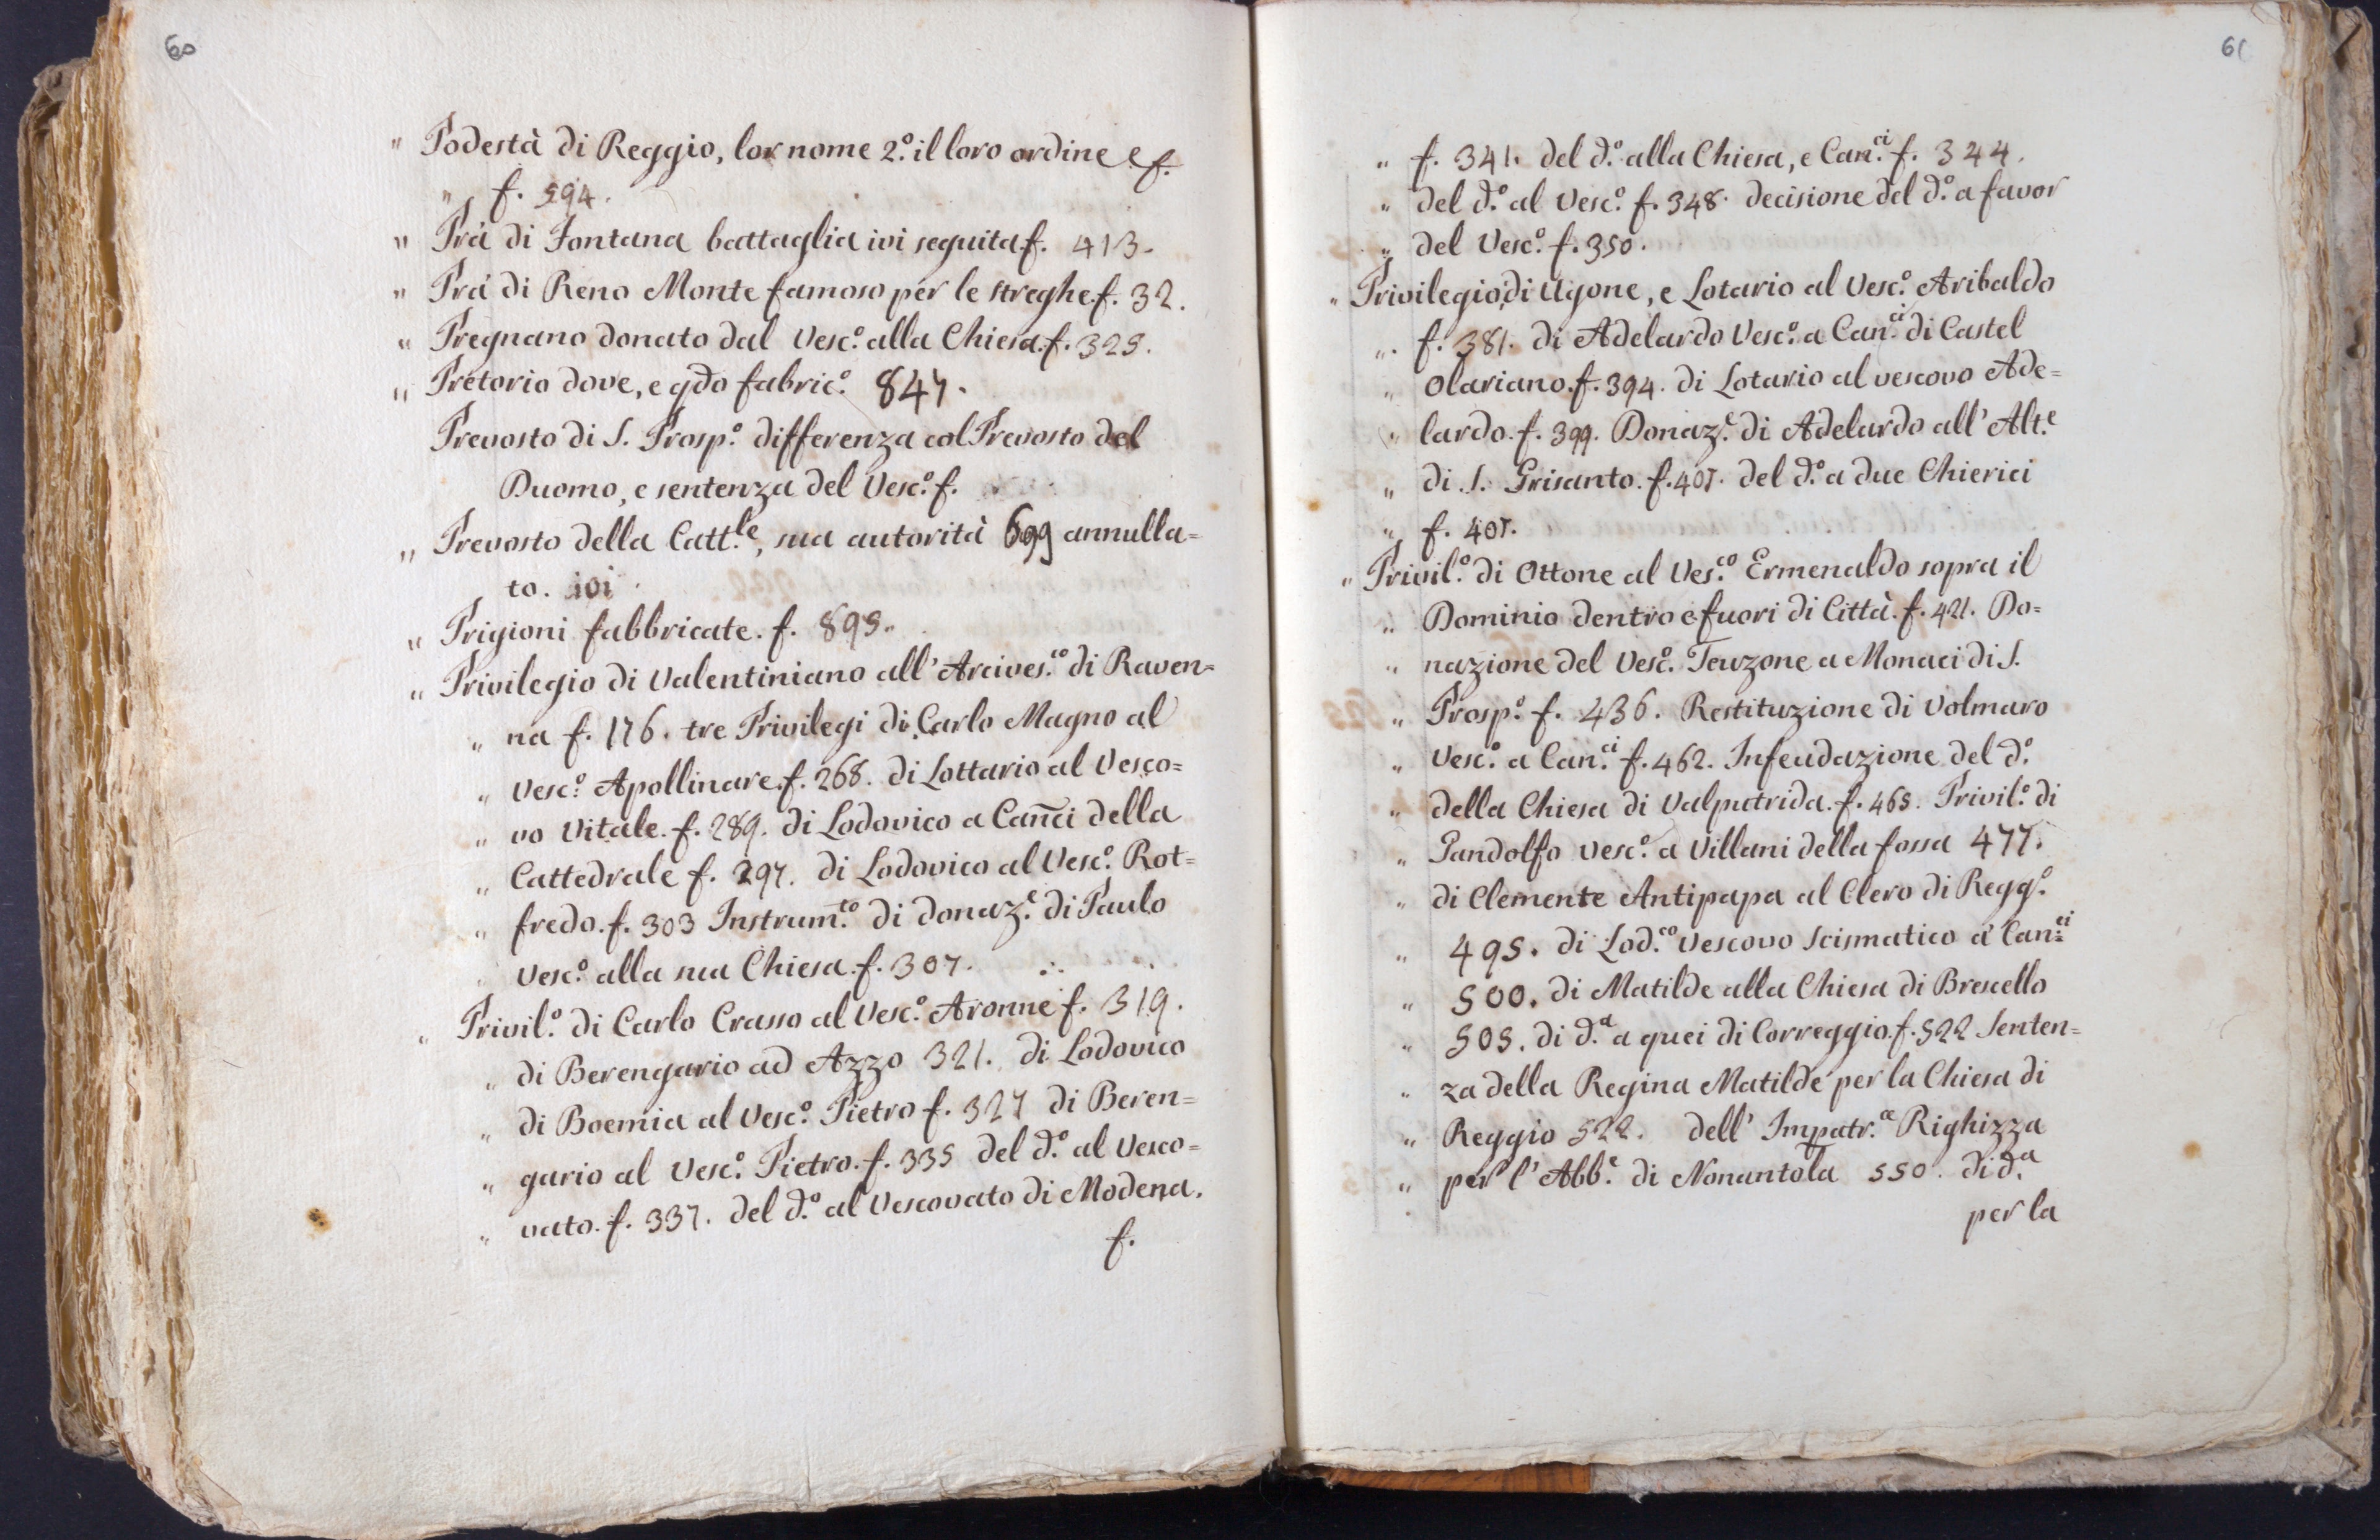 60
" Podestà di Reggio, lor nome 2.º il loro ordine e f.
" f. 594.
" Prà di Fontana battaglia ivi seguita. f. 413.
" Prà di Reno Monte famoso per le streghe. f. 32.
" Pregnano donato dal Vesc.º alla Chiesa. f. 325.
" Pretorio dove, e qdo fabric.º 847.
Prevosto di S. Prosp.º differenza col Prevosto del
Duomo, e sentenza del Vesc.º f.
" Prevosto della Catt.le, sua autorità 699 annulla=
to. ivi
" Prigioni fabbricate. f. 895.
" Privilegio di Valentiniano all' Arcives.co di Raven=
" na f. 176. tre Privilegi di Carlo Magno al
" Vesc.º Apollinare. f. 268. di Lottario al Vesco=
" vo Vitale. f. 289. di Lodovico a Can̄ci della
" Cattedrale f. 297. di Lodovico al Vesc.º Rot=
" fredo. f. 303 Instrum.to di donaz.e di Paulo
" Vesc.º alla sua Chiesa. f. 307.
" Privil.º di Carlo Crasso al Vesc.º Aronne f. 319.
" di Berengario ad Azzo 321. di Lodovico
" di Boemia al Vesc.º Pietro f. 327 di Beren=
" gario al Vesc.º Pietro. f. 335 del d.º al Vesco=
" vato. f. 337. del d.º al Vescovato di Modena.
f.
61
" f. 341. del d.º alla Chiesa, e Can.ci f. 344.
" del d.º al Vesc.º f. 348. decisione del d.º a favor
" del Vesc.º f. 350.
" Privilegio di Ugone, e Lotario al Vesc.º Aribaldo
" f. 381. di Adelardo Vesc.º a Can.ci di Castel
" Olariano. f. 394. di Lotario al vescovo Ade=
" lardo. f. 399. Donaz.e di Adelardo all' Alt.e
" di S. Grisanto. f. 407. del d.º a due Chierici
" f. 407.
" Privil.º di Ottone al Ves.co Ermenaldo sopra il
" Dominio dentro e fuori di Città. f. 421. Do=
" nazione del Vesc.º Teuzone a Monaci di S.
" Prosp.º f. 436. Restituzione di Volmaro
" Vesc.º a Can.ci f. 462. Infeudazione del d.º
" della Chiesa di Valputrida. f. 465. Privil.º di
" Gandolfo vesc.º a Villani della fossa 477.
" di Clemente Antipapa al Clero di Regg.º
" 495. di Lod.co Vescovo Scismatico a Can.ci
" 500. di Matilde alla Chiesa di Brescello
" 505. di d.a a quei di Correggio. f. 522 Senten=
" za della Regina Matilde per la Chiesa di
" Reggio 522. dell' Impatr.ce Righizza
" per l' Abb.e di Nonantola 550. di d.a
per la